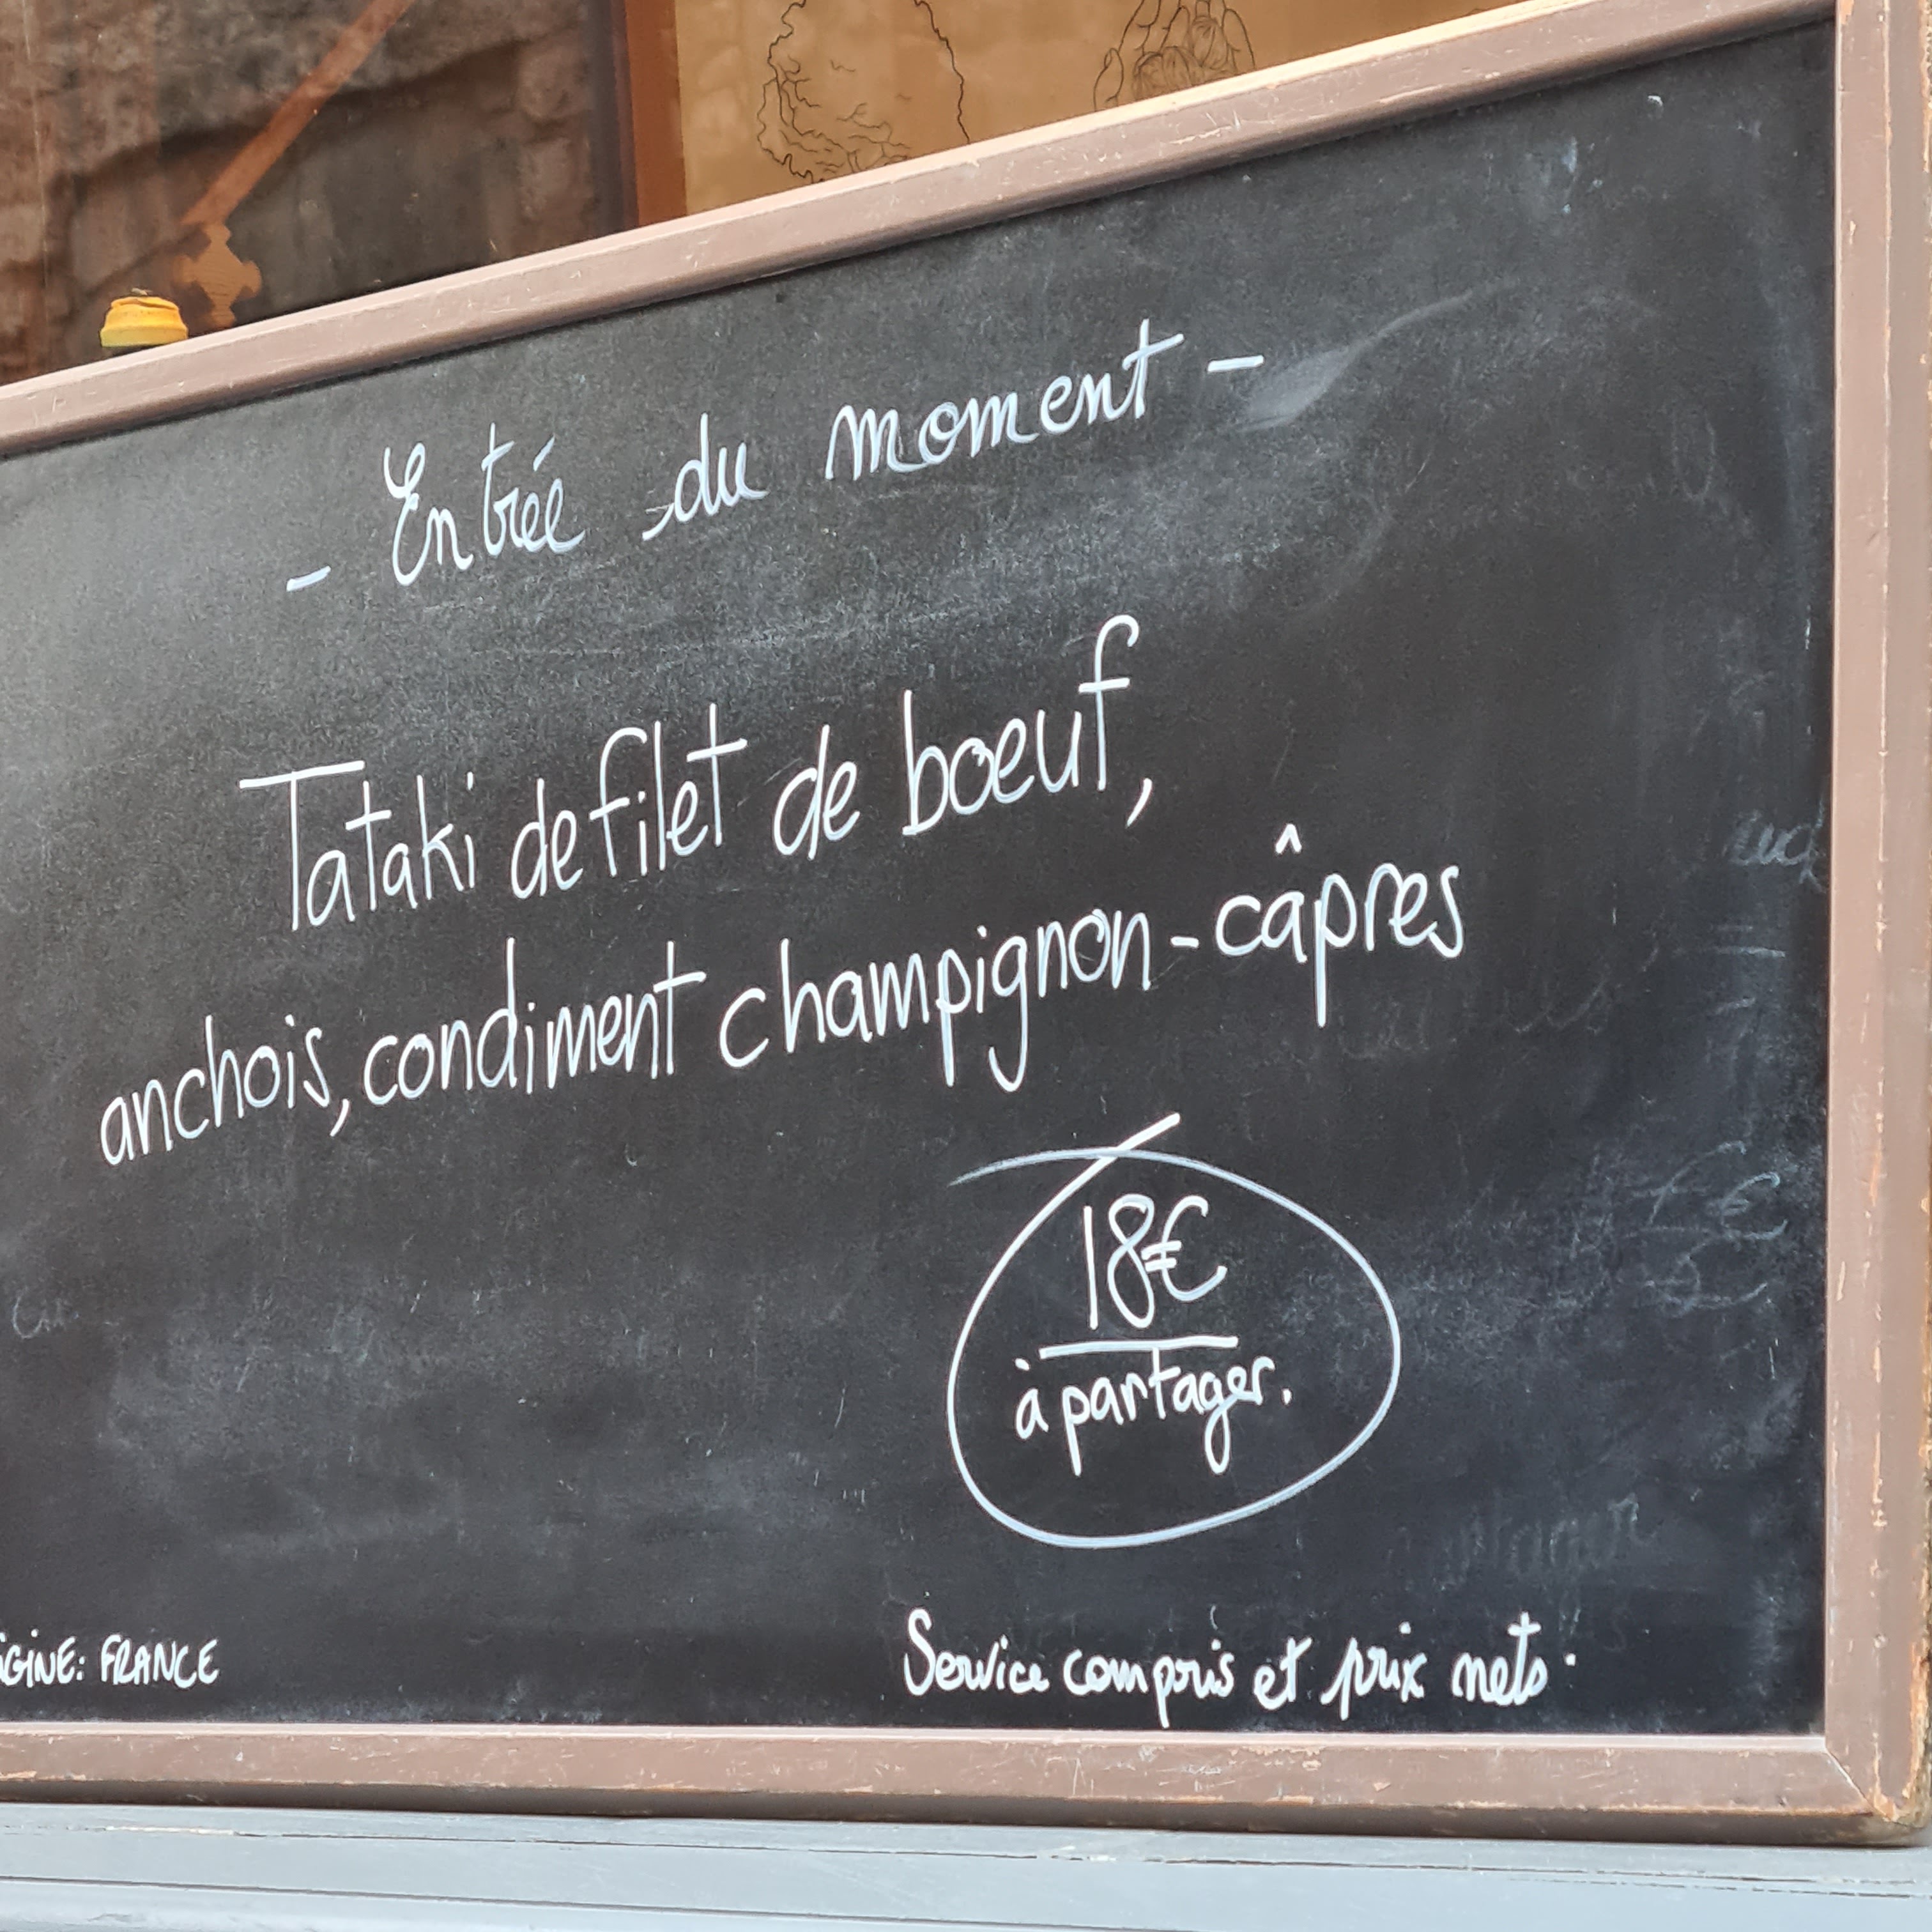 - Entrée du moment -
Tataki de filet de boeuf,
anchois, condiment champignon-câpres
18€
à partager.
FRANCE
Service compris et prix nets.